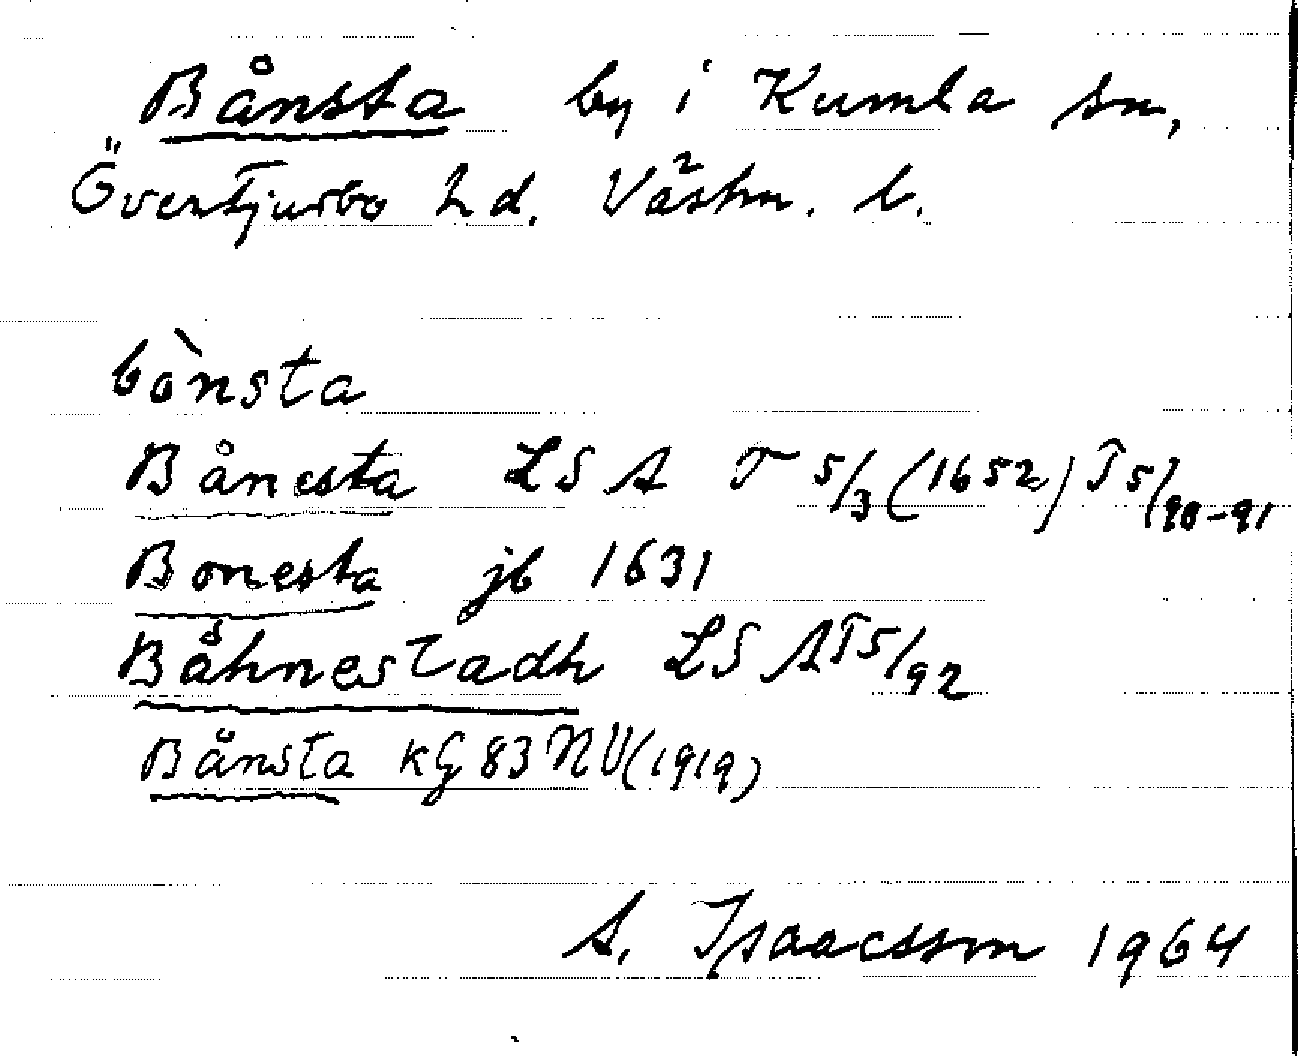 Bånsta by i Kumla sn,
Övertjurbo hd. Västm. l.
bònsta
Bånesta LSA T 5/3 (1652) T5/90-91
Bonesta jb 1631
Båhnestadh LSA T5/92
Bånsta kG 83 NV (1919)
A. Isaacsson 1964